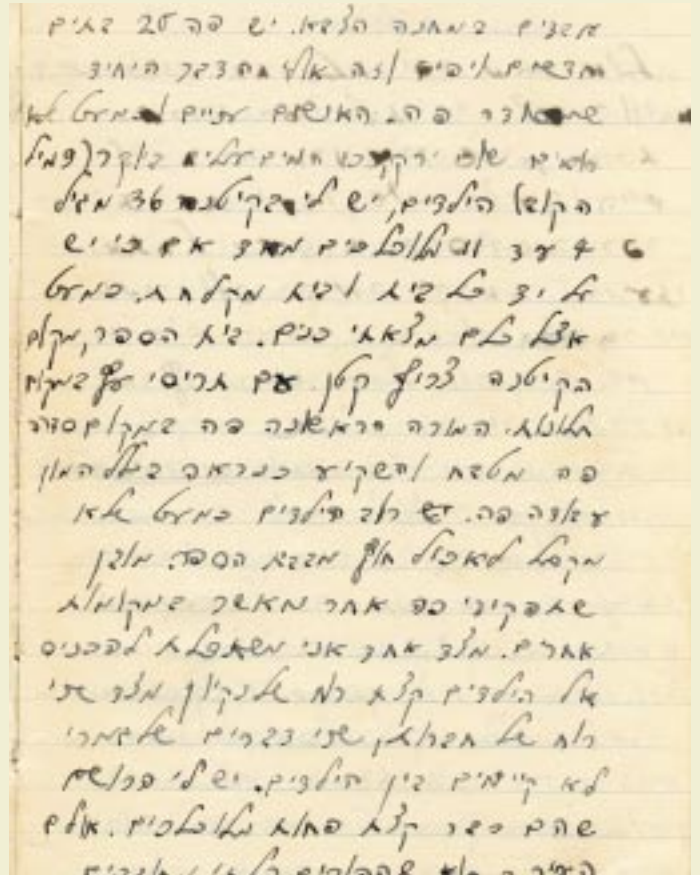 עובדים במחנה הצבא. יש פה 20 בתים
חדשים ויפים וזה אולי הדבר היחיד
פה. האנשים עניים וכמעט לא
רואים
הקודש הילדים, יש לי בקיטנה 36 מגיל
6 עד 11 מלוכלכים מאד אם כי יש
על יד כל בית וביא מקלחת. כמעט
אצל כלם מצאתי כנים. בית הספר, מקום
הקיטנה צריף קטן עם תריסי עץ במקום
חלונות. המורה הראשונה פה במקום סדרה
פה מטבח והשקיע כנראה בכלל המון
עבודה פה. יש רוב הילדים כמעט שלא
מקבל לאכול חוץ מבית הספר. מובן
שתפקידי פה אחר מאשר במקומות
אחרים. מצד אחד אני משתדלת להכניס
אל הילדים קצת רוח של נקיון מצד שני
רוח של חברות, שני דברים שלגמרי
לא קיימים בין הילדים. יש לי הרושם
שהם כבר קצת פחות מלוכלכים. אולם